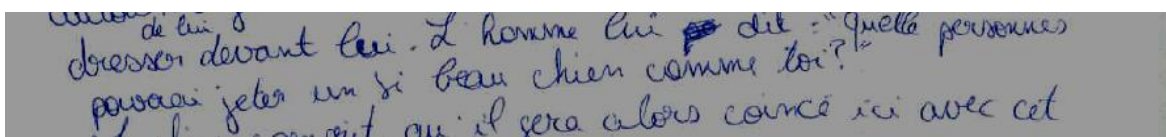 de lui,
dresser devant lui. L'homme lui dit : "Quelle personnes
pouvrai jeter un si beau chien comme toi?"
qu'il sera alors coincé ici avec cet